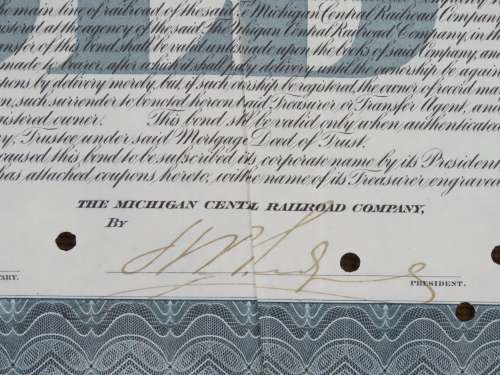 main line of railroad of the said The Michigan Central Railroad Company
istered at the agency of the said The Michigan Central Railroad Company, in the
nsfer of this bond shall be valid unless made upon the books of said Company, and
made to bearer, after which it shall pass by delivery until the ownership be again
pons by delivery merely, but, if such ownership be registered, the owner of record may
sion, such surrender to be noted hereon by said Treasurer or Transfer Agent, and
gistered owner. This bond shall be valid only when authenticated
ny, Trustee under said Mortgage Deed of Trust.
caused this bond to be subscribed in its corporate name by its President
has attached coupons hereto, with the name of its Treasurer engraved
THE MICHIGAN CENTL RAILROAD COMPANY,
BY
TARY.
PRESIDENT.